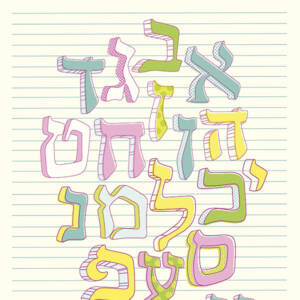 א ב ג ד
ה ו ז ח ט
י כ ל מ נ
ס ע פ